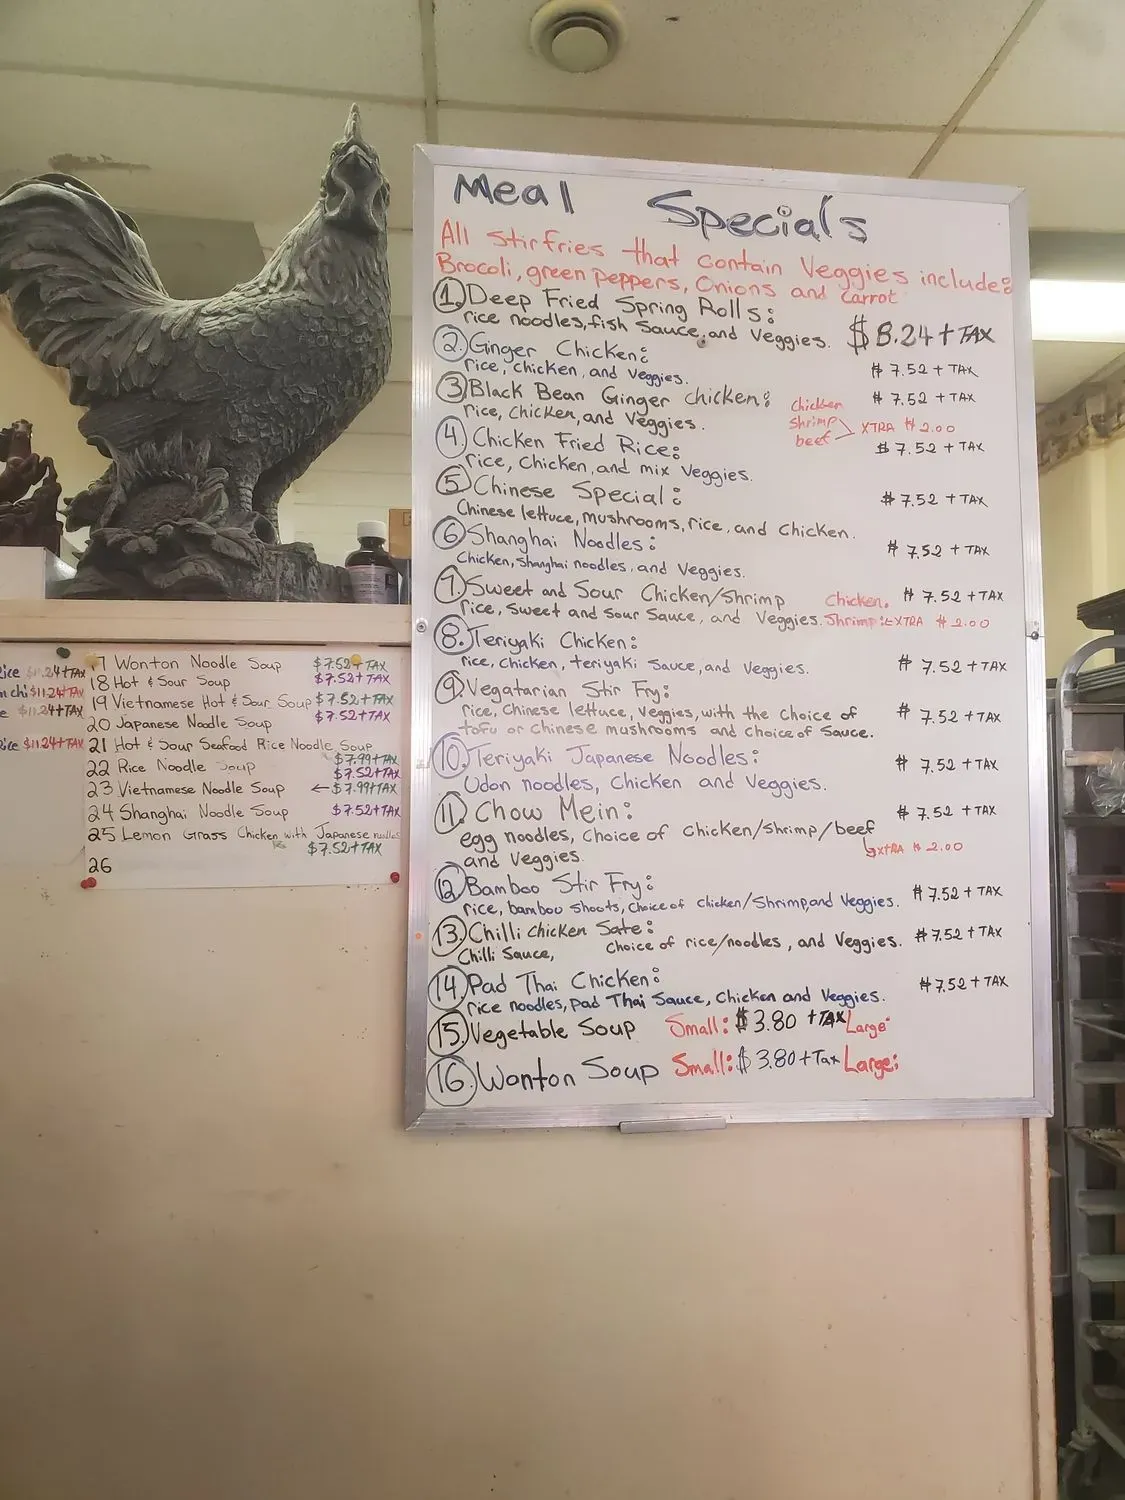 Meal Specials
All stirfries that contain Veggies include:
Brocoli, green peppers, Onions and Carrot
1. Deep Fried Spring Rolls:
rice noodles, fish sauce, and Veggies. $8.24 + TAX
2. Ginger Chicken:
rice, chicken, and Veggies. $7.52 + TAX
3. Black Bean Ginger chicken: $7.52 + TAX
rice, Chicken, and Veggies.
chicken
shrimp XTRA $2.00
beef
4. Chicken Fried Rice: $7.52 + TAX
rice, Chicken, and mix Veggies.
5. Chinese Special: $7.52 + TAX
Chinese lettuce, mushrooms, rice, and Chicken.
6. Shanghai Noodles: $7.52 + TAX
Chicken, Shanghai noodles, and Veggies.
7. Sweet and Sour Chicken/Shrimp Chicken. $7.52 + TAX
rice, Sweet and Sour Sauce, and Veggies. Shrimp: EXTRA $2.00
8. Teriyaki Chicken:
rice, Chicken, teriyaki Sauce, and Veggies. $7.52 + TAX
9. Vegatarian Stir Fry:
rice, Chinese lettuce, Veggies, with the choice of $7.52 + TAX
tofu or Chinese mushrooms and choice of Sauce.
10. Teriyaki Japanese Noodles: $7.52 + TAX
Udon noodles, Chicken and Veggies.
11. Chow Mein: $7.52 + TAX
egg noodles, Choice of Chicken/shrimp/beef
and Veggies. XTRA $2.00
12 Bamboo Stir Fry: $7.52 + TAX
rice, bamboo shoots, Choice of chicken/Shrimp, and Veggies.
13. Chilli chicken Sate: $7.52 + TAX
Chilli Sauce, Choice of rice/noodles, and Veggies.
14. Pad Thai Chicken: $7.52 + TAX
rice noodles, pad Thai Sauce, Chicken and Veggies.
15. Vegetable Soup Small: $3.80 + TAX Large:
16. Wonton Soup Small: $3.80 + Tax Large:
ice $11.24+TAX
n chi $11.24+TAX
e $11.24+TAX
ice $11.24+TAX
17 Wonton Noodle Soup $7.52+TAX
18 Hot & Sour Soup $7.52+TAX
19 Vietnamese Hot & Sour Soup $7.52+TAX
20 Japanese Noodle Soup $7.52+TAX
21 Hot & Sour Seafood Rice Noodle Soup
$7.99+TAX
22 Rice Noodle Soup $7.52+TAX
23 Vietnamese Noodle Soup ←$7.99+TAX
24 Shanghai Noodle Soup $7.52+TAX
25 Lemon Grass Chicken with Japanese noodles
$7.52+TAX
26